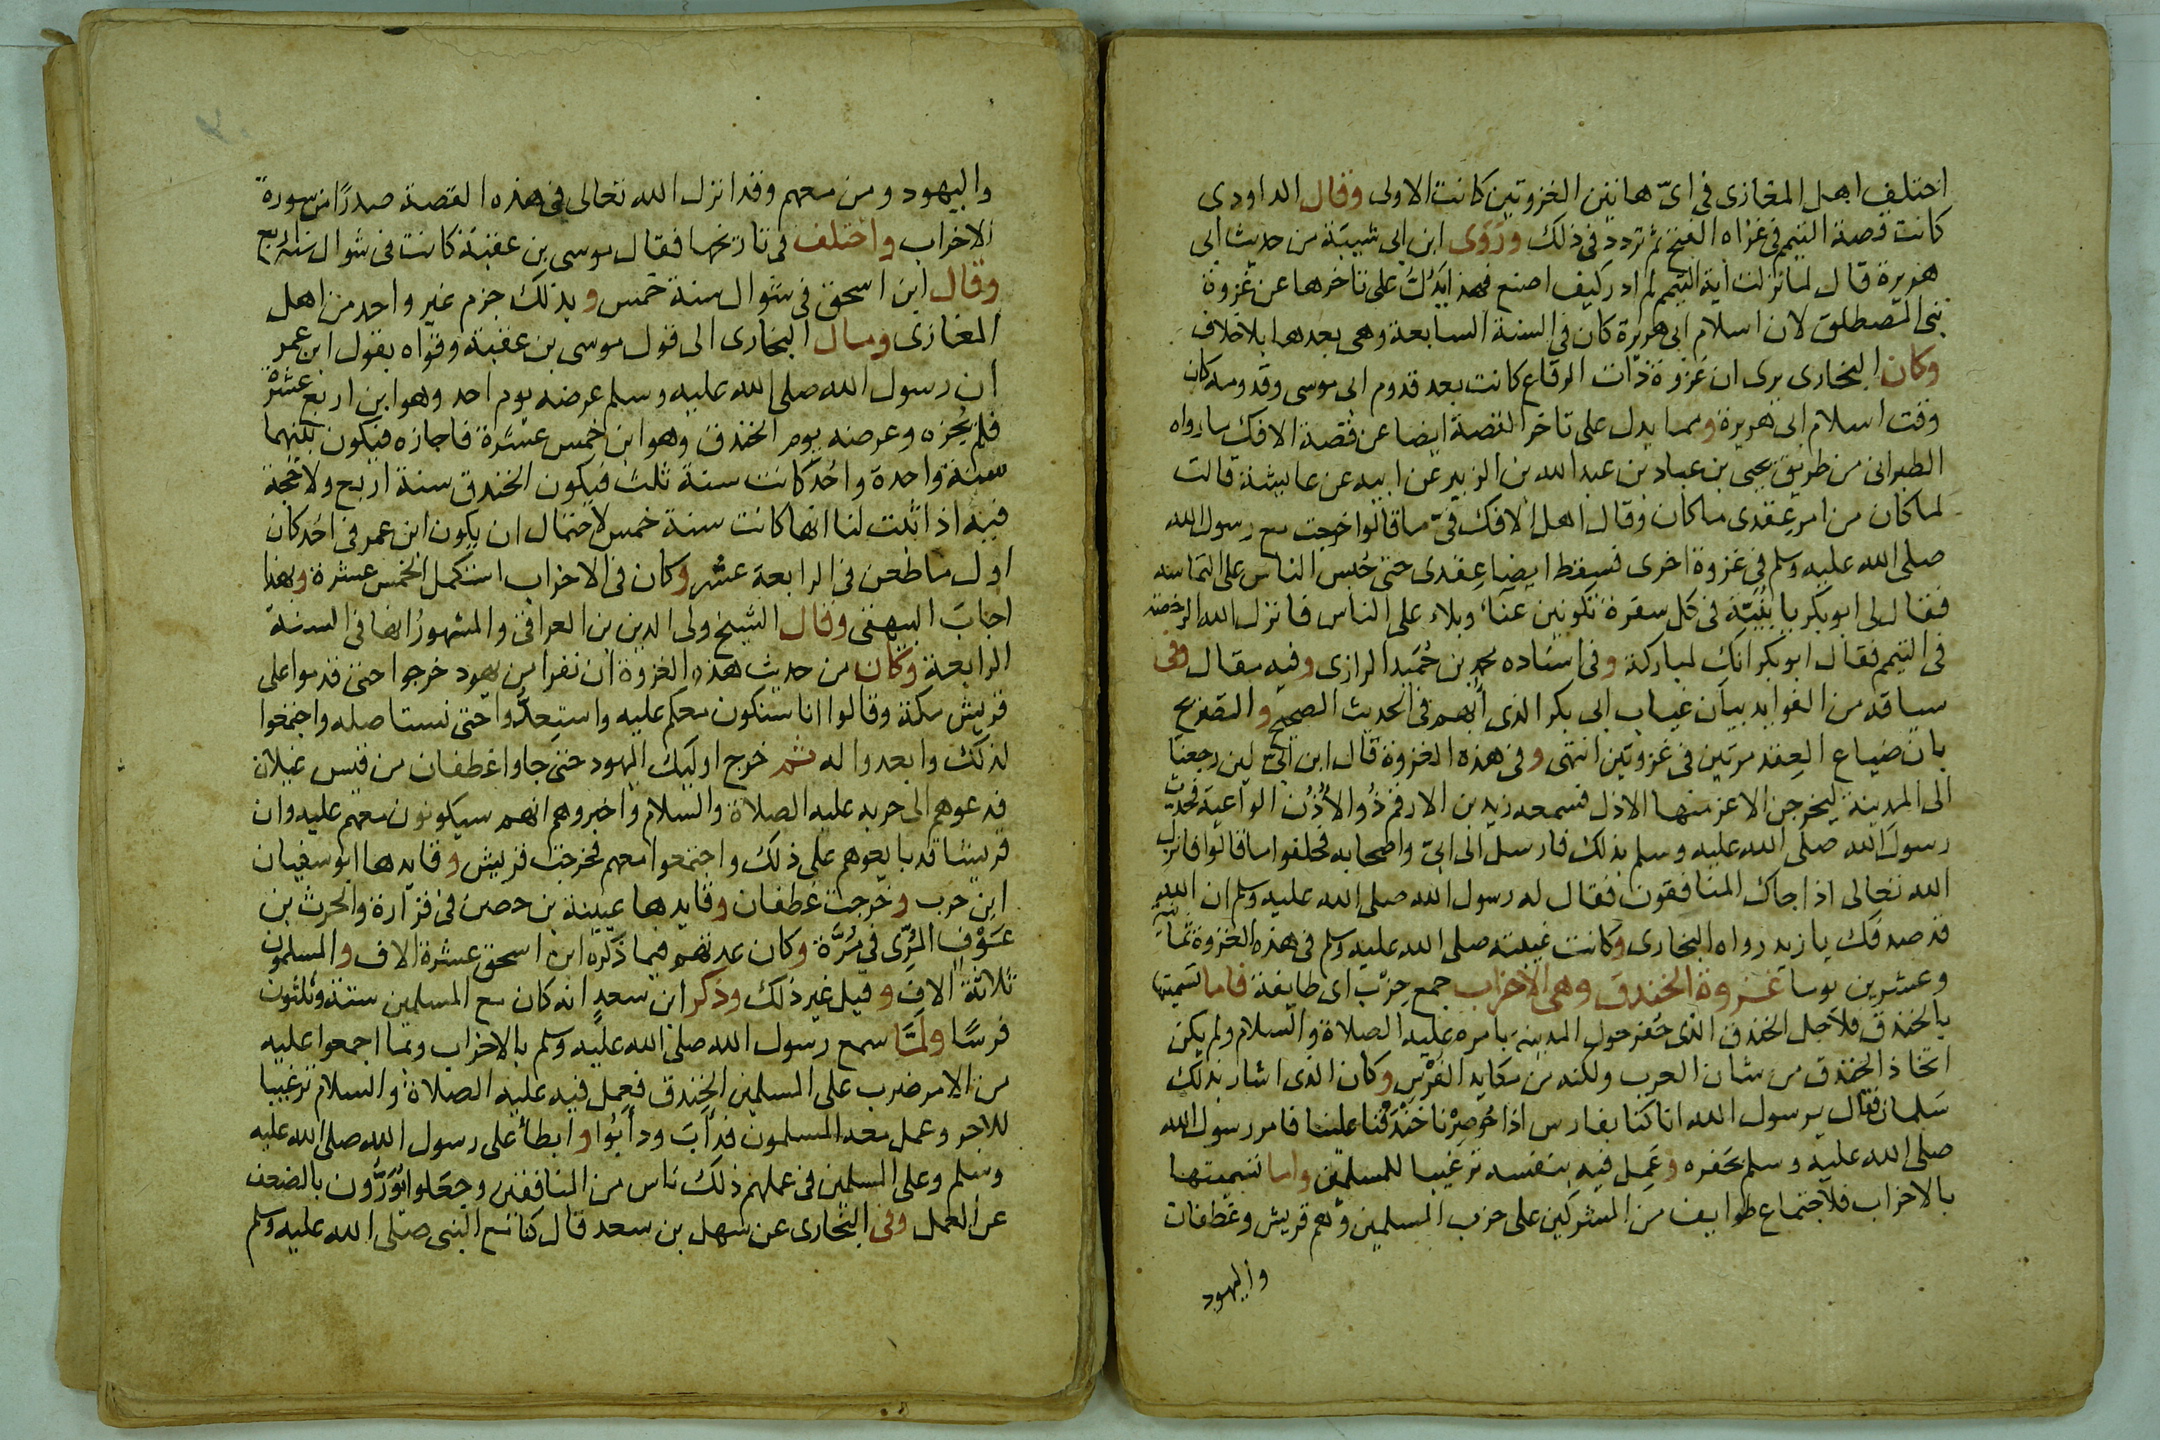 اختلف اهل المغازى فى اىّ هاتين الغزوتين كانت الاولى وقال الداودى
كانت قصة التيمم فى غزاه الفتح ثم تردد فى ذلك وروى ابن ابى شيبة من حديث ابى
هريرة قال لما نزلت اية التيمم لم ادر كيف اصنع فهذا يدل على تاخرها عن غزوة
بنى المصطلق لان اسلام ابى هريرة كان فى السنة السابعة وهى بعدها بلا خلاف
وكان البخارى يرى ان غزوة ذات الرقاع كانت بعد قدوم ابى موسى وقدومه كان
وقت اسلام ابى هريرة ومما يدل على تاخر القصة ايضا عن قصة الافك ما رواه
الطبرانى من طريق يحيى بن عباد بن عبد الله بن الزبير عن ابيه عن عايشة قالت
لما كان من امر عقدى ما كان وقال اهل الافك فىّ ما قالوا خرجت مع رسول الله
صلى الله عليه وسلم فى غزوة اخرى فسقط ايضا عقدى حتى حُبس الناس على التماسه
فقال لى ابو بكر يا بنيّة فى كل سفرة تكونين عناء وبلاء على الناس فانزل الله الرخصة
فى التيمم فقال ابو بكر انك لمباركة وفى اسناده محمد بن حُمَيد الرازى وفيه مقال وفى
سياقه من الفوايد بيان عتاب ابى بكر الذى أبهم فى الحديث الصحيح والتصريح
بان ضياع العقد مرتين فى غزوتين انتهى وفى هذه الغزوة قال ابن ابىّ لين رجعنا
الى المدينة ليخرجن الاعز منها الاذل فسمعه زيد بن الارقم ذُو الأُذُن الواعية فحدث
رسول الله صلى الله عليه وسلم بذلك فارسل الى ابىّ واصحابه فحلفوا ما قالوا فانزل
الله تعالى اذا جاك المنافقون فقال له رسول الله صلى الله عليه وسلم ان الله
قد صدقك يا زيد رواه البخارى وكانت غيبته صلى الله عليه وسلم فى هذه الغزوة ثمانية
وعشرين يوما غزوة الخندق وهى الاحزاب جمع حِزْب اى طايفة فاما تسميتها
بالخندق فلاجل الخندق الذى حُفر حول المدينة بامره عليه الصلاة والسلام ولم يكن
اتخاذ الخندق من شان العرب ولكنه من مكايد الفُرْس وكان الذى اشار بذلك
سَلمان فقال يرسول الله انا كنا بفارس اذا حُوصِرْنا خَنْدَقْنا علينا فامر رسول الله
صلى الله عليه وسلم بحفره وعَمِل فيه بنفسه ترغيبا للمسلمين واما تسميتها
بالاحزاب فلاجتماع طوايف من المشركين على حزب المسلمين وهم قريش وغطفان
واليهود
واليهود ومن معهم وقد انزل الله تعالى فى هذه القصة صدرًا من سورة
الاحزاب واختلف فى تاريخها فقال موسى بن عقبة كانت فى شوال سنة اربع
وقال ابن اسحق فى شوال سنة خمس وبذلك جزم غير واحد من اهل
المغازى ومال البخارى الى قول موسى بن عقبة وقواه بقول ابن عمر
ان رسول الله صلى الله عليه وسلم عرضه يوم احد وهو ابن اربع عشرة
فلم يُجزه وعرضه يوم الخندق وهو ابن خمس عشرة فاجازه فيكون بينهما
سنة واحدة واحُد كانت سنة ثلث فيكون الخندق سنة اربع ولا حجة
فيه اذا ثبت لنا انها كانت سنة خمس لاحتمال ان يكون ابن عمر فى احُد كان
اول ما طعن فى الرابعة عشر وكان فى الاحزاب استكمل الخمس عشرة وبهذا
اجاب البيهقى وقال الشيخ ولى الدين بن العراقى والمشهورُ انها فى السنة
الرابعة وكان من حديث هذه الغزوة ان نفرا من يهود خرجوا حتى قدموا على
قريش مكة وقالوا انا سنكون معكم عليه واستعِدُّوا حتى نستاصله واجتمعوا
لذلك وابعدوا له ثم خرج اوليك اليهود حتى جاوا غطفان من قيس غيلان
فدعوهم الى حربه عليه الصلاة والسلام واخبروهم انهم سيكونون معهم عليه وان
قريشا قد بايعوهم على ذلك واجتمعوا معهم فخرجت قريش وقايدها ابو سفيان
ابن حرب وخرجت غطفان وقايدها عيينة بن حصن فى فزارة والحرث بن
عَوْف المُرِّى فى مُرَّة وكان عدتهم فيما ذكره ابن اسحق عشرة الاف والمسلمون
ثلاثة الاف وقيل غير ذلك وذكر ابن سعدٍ انه كان مع المسلمين ستة وثلثون
فرسًا ولمَّا سمع رسول الله صلى الله عليه وسلم بالاحزاب وبما اجمعوا عليه
من الامر ضرب على المسلمين الخندق فعمِل فيه عليه الصلاة والسلام ترغيبا
للاجر وعمل معه المسلمون فدَأَبَ ودَأَبُوا وابطأ على رسول الله صلى الله عليه
وسلم وعلى المسلمين فى عملهم ذلك ناس من المنافقين وجعلوا يُوَرُّون بالضعف
عن العمل وفى البخارى عن سهل بن سعد قال كنا مع النبى صلى الله عليه وسلم